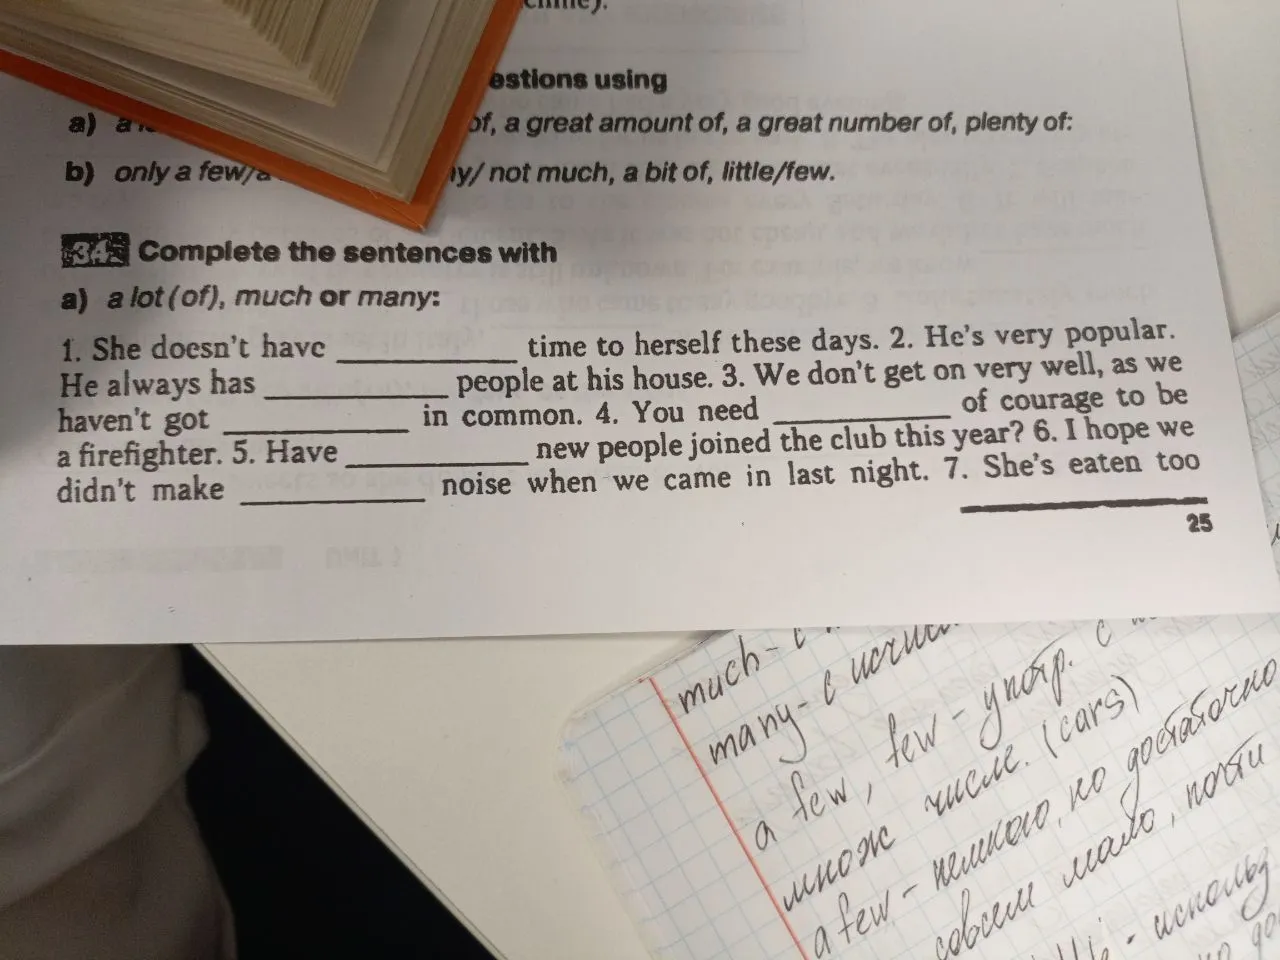 estions using
a) of, a great amount of, a great number of, plenty of:
b) only a few/a y/ not much, a bit of, little/few.
34 Complete the sentences with
a) a lot (of), much or many:
1. She doesn't have __________ time to herself these days. 2. He's very popular.
He always has __________ people at his house. 3. We don't get on very well, as we
haven't got __________ in common. 4. You need __________ of courage to be
a firefighter. 5. Have __________ new people joined the club this year? 6. I hope we
didn't make __________ noise when we came in last night. 7. She's eaten too
25
much - с
many - с исчис
a few, few - употр. с
множ числе. (cars)
a few - немного, но достаточно
совсем мало, почти
- использ